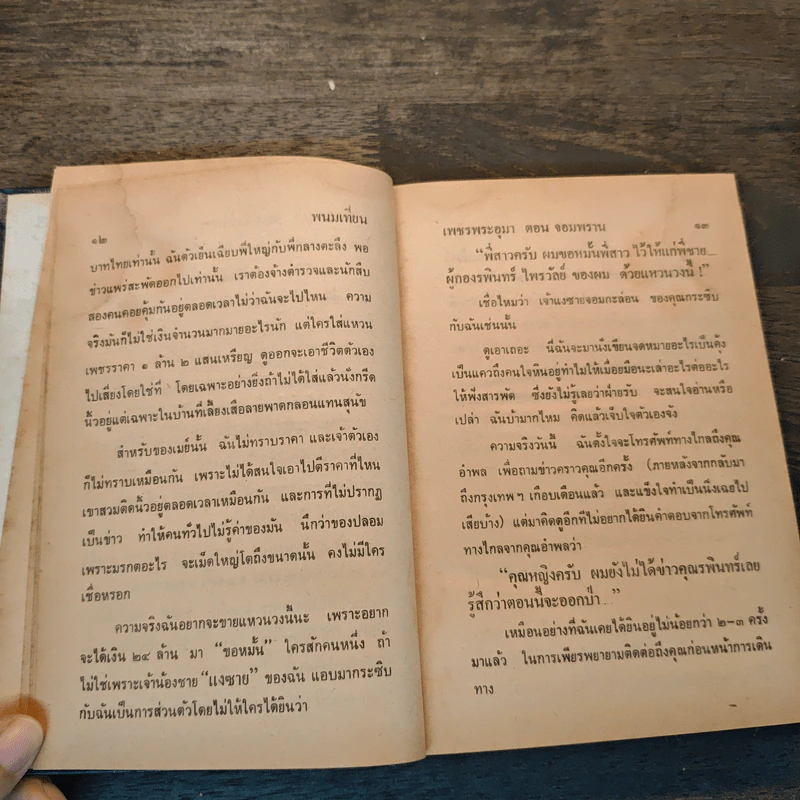 ๑๒
พนมเทียน
บาทไทยเท่านั้น ฉันตัวเย็นเฉียบพี่ใหญ่กับพี่กลางตะลึง พอ
ข่าวแพร่สะพัดออกไปเท่านั้น เราต้องจ้างตำรวจและนักสืบ
สองคนคอยคุ้มกันอยู่ตลอดเวลาไม่ว่าฉันจะไปไหน ความ
จริงมันก็ไม่ใช่เงินจำนวนมากมายอะไรนัก แต่ใครใส่แหวน
เพชรราคา ๑ ล้าน ๒ แสนเหรียญ ดูออกจะเอาชีวิตตัวเอง
ไปเสี่ยงโดยใช่ที่ โดยเฉพาะอย่างยิ่งถ้าไม่ได้ใส่แล้วนั่งกรีด
นิ้วอยู่แต่เฉพาะในบ้านที่เลี้ยงเสือลายพาดกลอนแทนสุนัข
สำหรับของเมย์นั้น ฉันไม่ทราบราคา และเจ้าตัวเอง
ก็ไม่ทราบเหมือนกัน เพราะไม่ได้สนใจเอาไปตีราคาที่ไหน
เขาสวมติดนิ้วอยู่ตลอดเวลาเหมือนกัน และการที่ไม่ปรากฏ
เป็นข่าว ทำให้คนทั่วไปไม่รู้ค่าของมัน นึกว่าของปลอม
เพราะมรกตอะไร จะเม็ดใหญ่โตถึงขนาดนั้น คงไม่มีใคร
เชื่อหรอก
ความจริงฉันอยากจะขายแหวนวงนี้นะ เพราะอยาก
จะได้เงิน ๒๔ ล้าน มา “ขอหมั้น” ใครสักคนหนึ่ง ถ้า
ไม่ใช่เพราะเจ้าน้องชาย “แงซาย” ของฉัน แอบมากระซิบ
กับฉันเป็นการส่วนตัวโดยไม่ให้ใครได้ยินว่า
เพชรพระอุมา ตอน จอมพราน
๑๓
“พี่สาวครับ ผมขอหมั้นพี่สาว ไว้ให้แก่พี่ชาย...
ผู้กองรพินทร์ ไพรวัลย์ ของผม ด้วยแหวนวงนี้ !”
เชื่อไหมว่า เจ้าแงซายจอมกะล่อน ของคุณกระซิบ
กับฉันเช่นนั้น
ดูเอาเถอะ นี่ฉันจะมานั่งเขียนจดหมายอะไรเป็นคุ้ง
เป็นแควถึงคนใจหินอยู่ทำไมให้เมื่อยมือนะเล่าอะไรต่ออะไร
ให้ฟังสารพัด ซึ่งยังไม่รู้เลยว่าผู้รับ จะสนใจอ่านหรือ
เปล่า ฉันบ้ามากไหม คิดแล้วเจ็บใจตัวเองจัง
ความจริงวันนี้ ฉันตั้งใจจะโทรศัพท์ทางไกลถึงคุณ
อำพล เพื่อถามข่าวคราวคุณอีกครั้ง (ภายหลังจากกลับมา
ถึงกรุงเทพ ฯ เกือบเดือนแล้ว และแข็งใจทำเป็นนิ่งเฉยไป
เสียบ้าง) แต่มาคิดดูอีกทีไม่อยากได้ยินคำตอบจากโทรศัพท์
ทางไกลจากคุณอำพลว่า
“คุณหญิงครับ ผมยังไม่ได้ข่าวคุณรพินทร์เลย
รู้สึกว่าตอนนี้จะออกป่า...”
เหมือนอย่างที่ฉันเคยได้ยินอยู่ไม่น้อยกว่า ๒-๓ ครั้ง
มาแล้ว ในการเพียรพยายามติดต่อถึงคุณก่อนหน้าการเดิน
ทาง